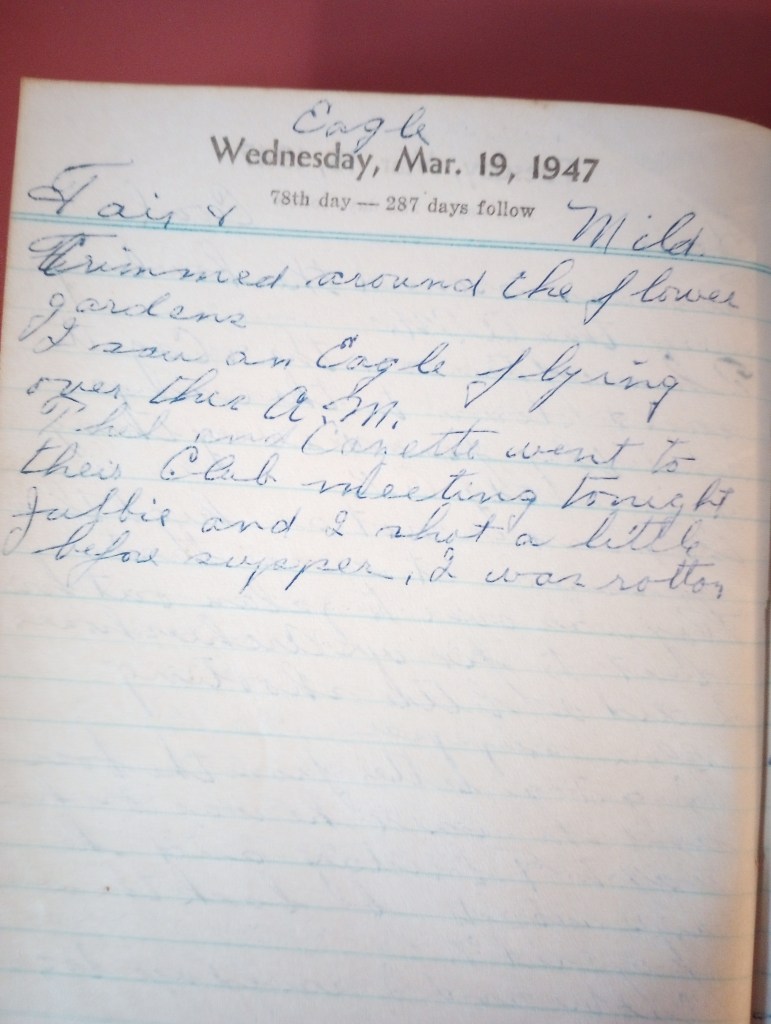 Eagle
Wednesday, Mar. 19, 1947
78th day — 287 days follow
Fair & Mild
Trimmed around the flower
gardens
I saw an Eagle flying
over this A.M.
Thel and went to
their Club meeting tonight
and I shot a little
before supper, I was rotton